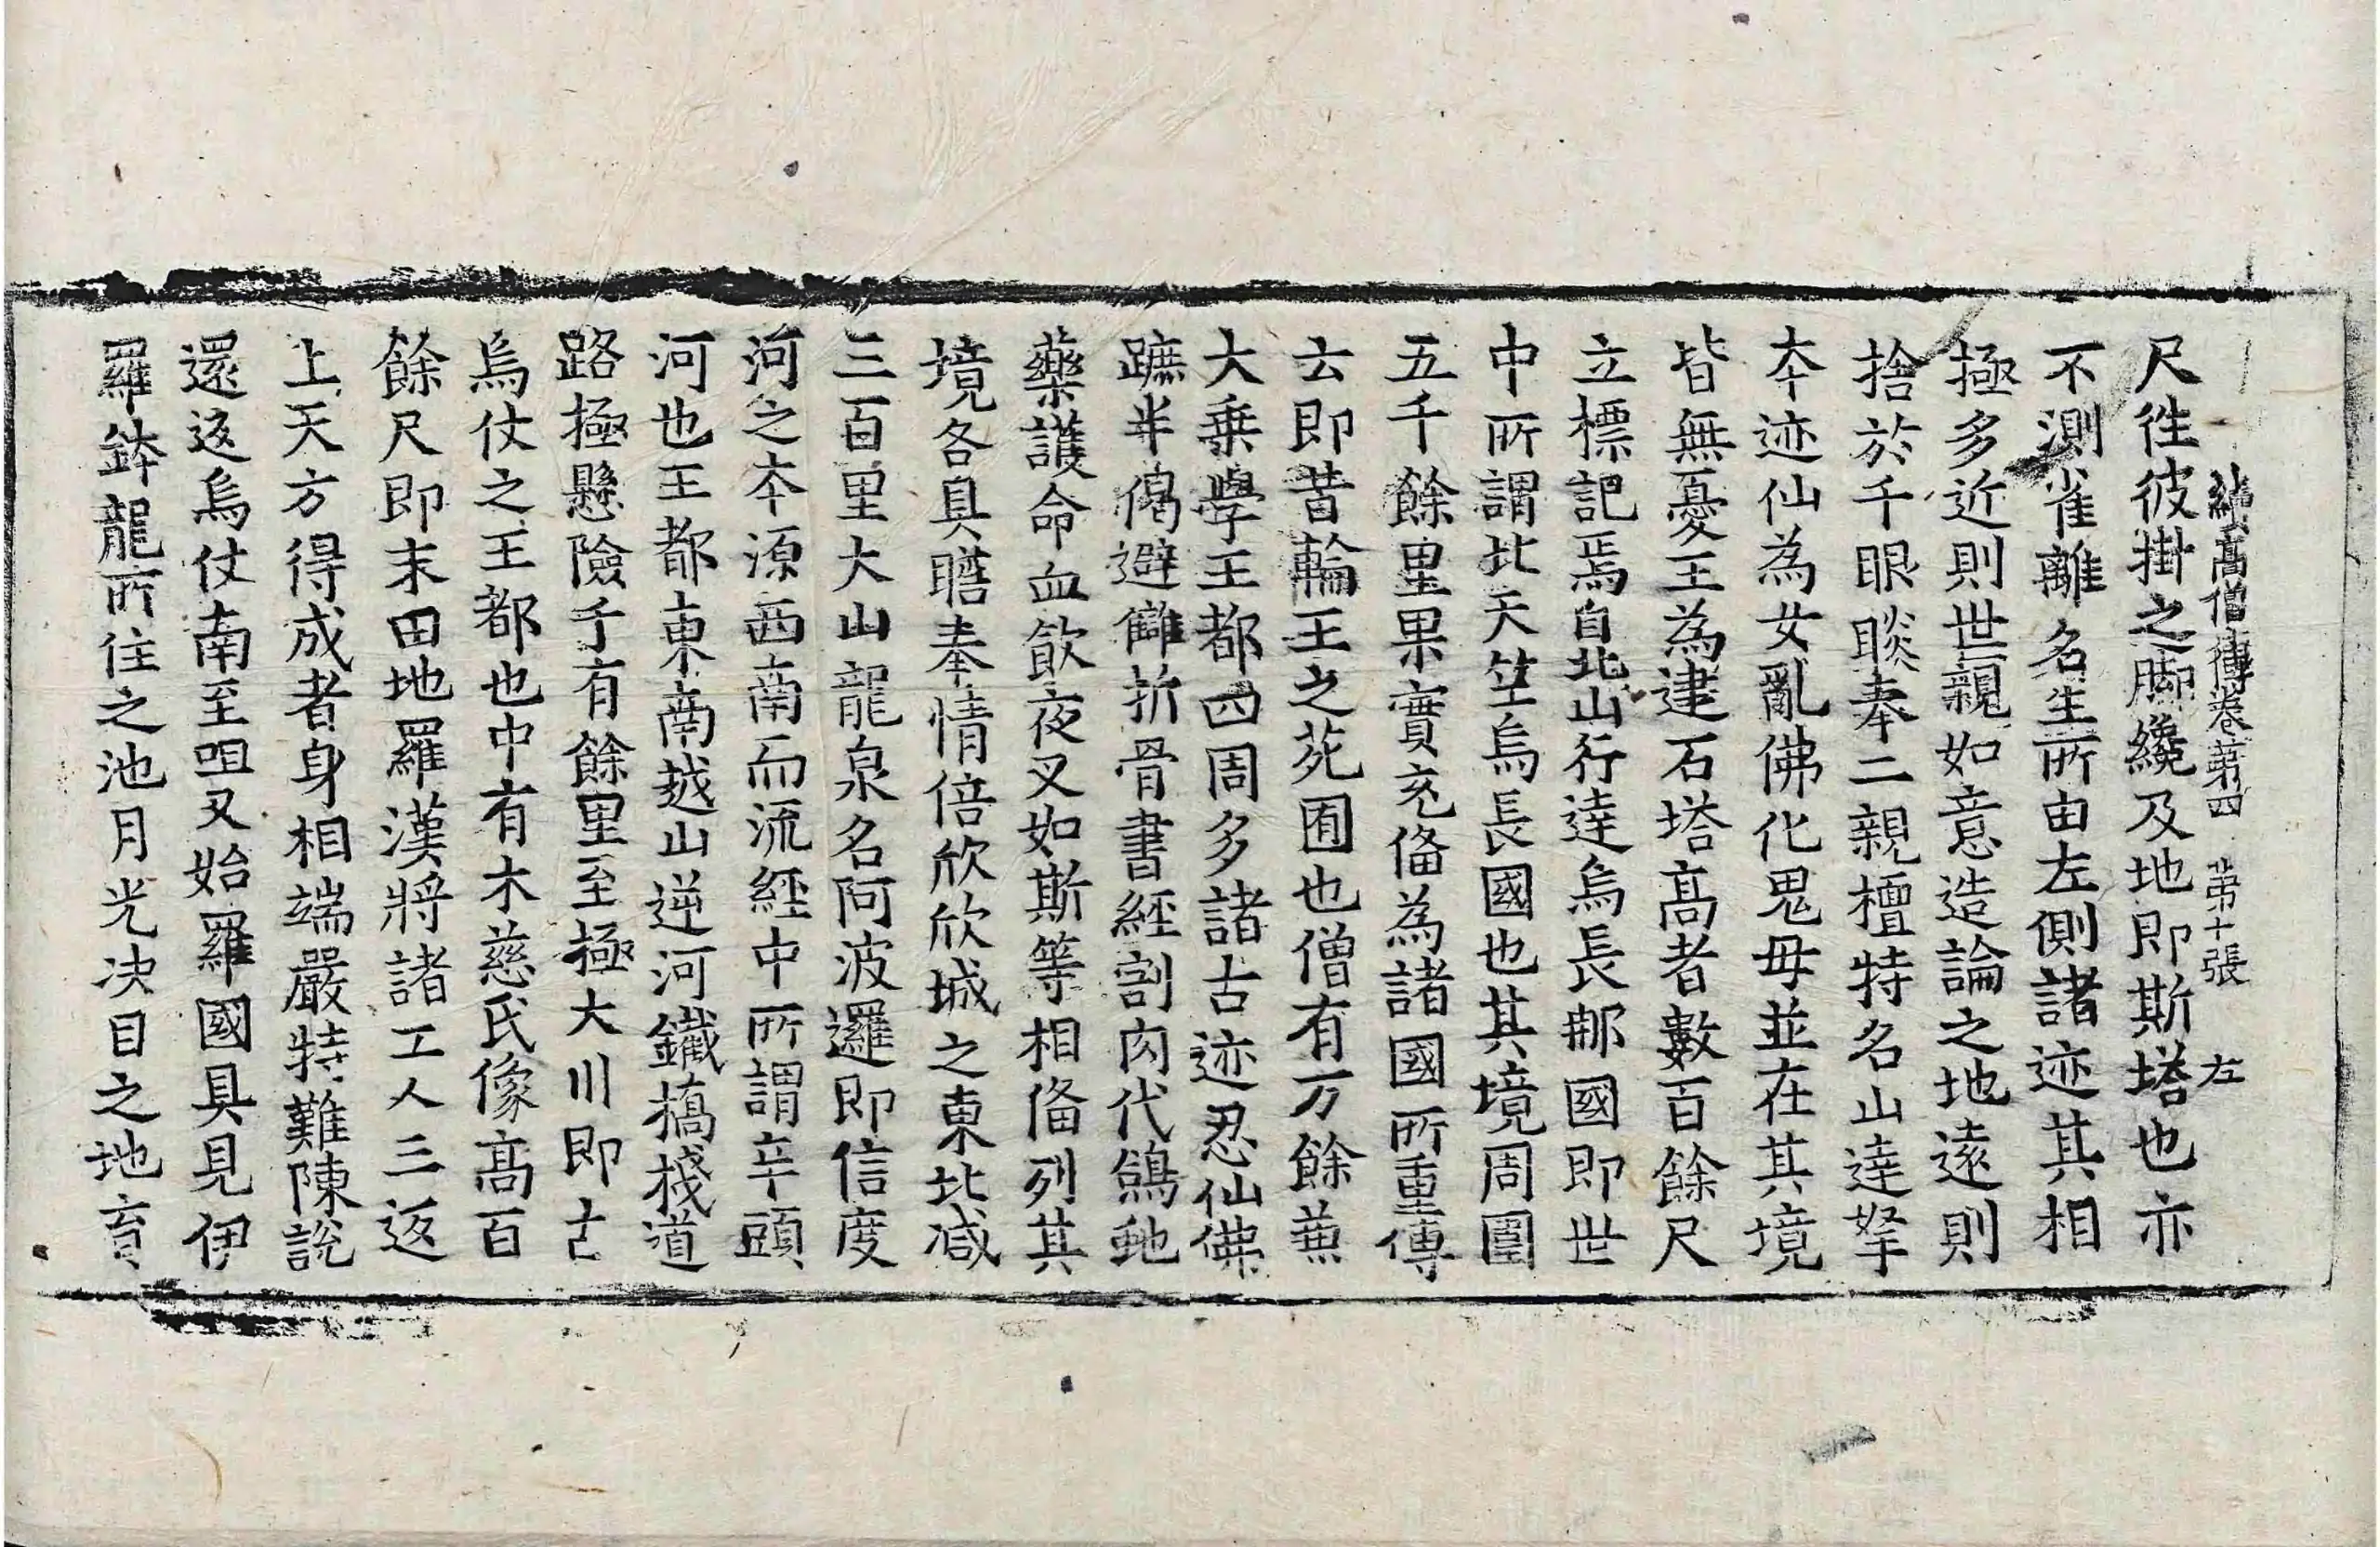 續高僧傳卷第四 第十張 左
尺徃彼掛之脚纔及地即斯塔也亦
不測雀離名生所由左側諸迹其相
極多近則世親如意造論之地遠則
捨於千眼睒奉二親檀特名山達拏
夲迹仙為女亂佛化鬼母並在其境
皆無憂王為建石塔髙者數百餘尺
立標記焉自北山行達烏長那國即世
中所謂北天竺烏長國也其境周圍
五千餘里果實充俻為諸國所重傳
云即昔輪王之苑囿也僧有万餘兼
大乗學王都四周多諸古迹忍仙佛
蹠半偈避讎折骨書經割肉代鴿虵
藥護命血飲夜叉如斯等相俻列其
境各具瞻奉情倍欣欣城之東北减
三百里大山龍泉名阿波邏即信度
河之夲源西南而流經中所謂辛頭
河也王都東南越山逆河鐵橋棧道
路極懸險千有餘里至極大川即古
烏仗之王都也中有木慈氏像髙百
餘尺即末田地羅漢將諸工人三返
上天方得成者身相端嚴特難陳說
還返烏仗南至呾叉始羅國具見伊
羅鉢龍所住之池月光决目之地育